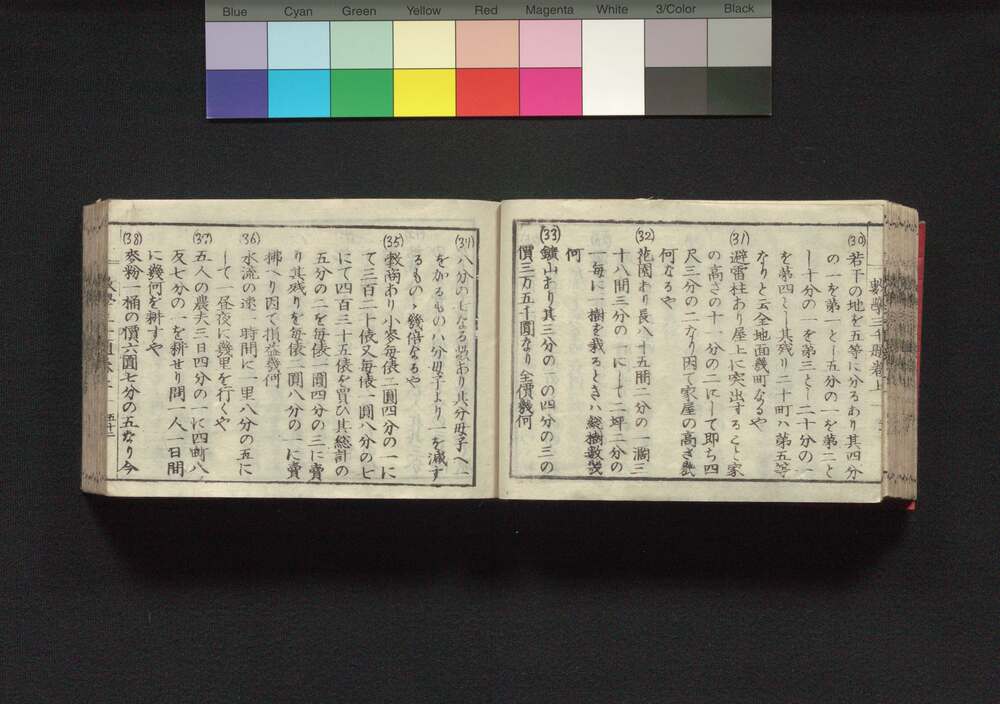 Blue Cyan Green Yellow Red Magenta White 3/Color Black
數學三千題卷上
(30)若干の地を五等に分るあり其四分
の一を第一とし五分の一を第二と
し十分の一を第三とし二十分の一
を第四とし其残り二十町ハ第五等
なりと云全地面幾町なるや
(31)避雷柱あり屋上に突出すること家
の高さの十一分の二にして即ち四
尺三分の二なり因て家屋の高さ幾
何なるや
(32)花園あり長八十五間二分の一濶三
十八間三分の一にして二坪二分の
一毎に一樹を栽るときハ総樹数幾
何
(33)鑛山あり其三分の一の四分の三の
價三万五千圓なり全價幾何
(34)八分の七なる数あり其分母子へ一
をかるものハ分母子より一を減す
るものゝ幾倍なるや
(35)穀商あり小麥毎俵二圓四分の一に
て三百二十俵又毎俵一圓八分の七
にて四百三十五俵を買ひ其総計の
五分の二を毎俵一圓四分の三に賣
り其残りを毎俵二圓八分の一に賣
拂へり因て損益幾何
(36)水流の速一時間に一里八分の五に
して一昼夜に幾里を行くや
(37)五人の農夫三日四分の一に四町八
反七分の一を耕せり問一人一日間
に幾何を耕すや
(38)麥粉一桶の價六圓七分の五なり今